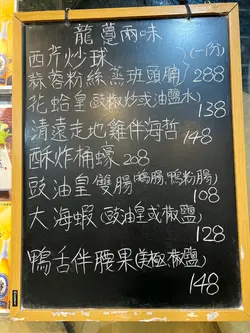 龍躉兩味
西芹炒球 (一份)
蒜蓉粉絲蒸班頭腩 288
花蛤皇(豉椒炒或油鹽水) 138
清遠走地雞伴海哲 148
酥炸桶蠔 208
豉油皇雙腸(鵝腸,鴨粉腸) 108
大海蝦(豉油皇或椒鹽) 128
鴨舌伴腰果(美極,椒鹽) 148